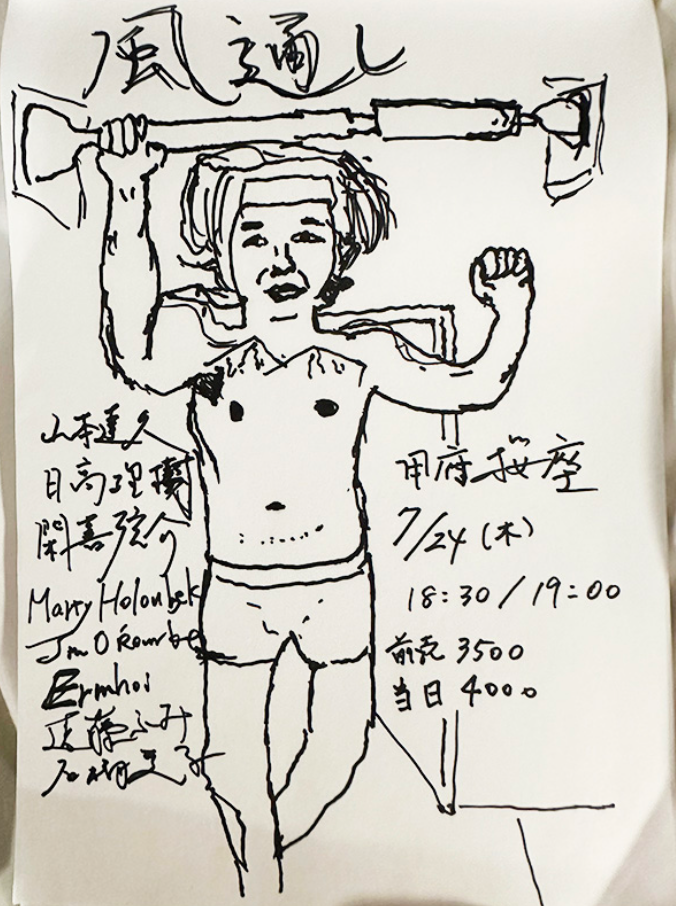 風通し
山本達久
日高理樹
閑喜弦介
Marty Holoubek
Jim O'Rourke
Ermhoi
石橋英子
甲府桜座
7/24(木)
18:30/19:00
前売 3500
当日 4000